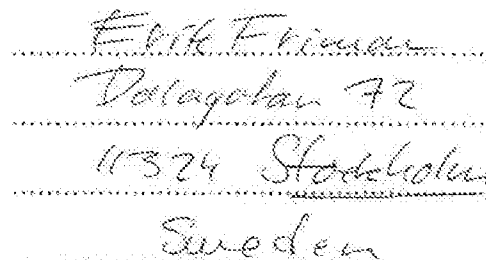 Erik Friman
Dalagatan 72
11324 Stockholm
Sweden